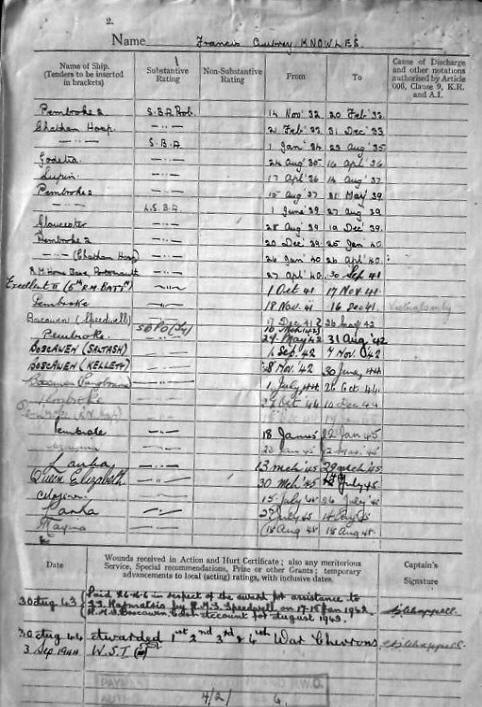 2.
Name Francis Aubrey KNOWLES.
Name of Ship. (Tenders to be inserted in brackets) Substantive Rating Non-Substantive Rating From To Cause of Discharge and other notations authorised by Article 606, Clause 9, K.R. and A.I.
Pembroke 2 S.B.A. Prob. 14 Nov '32 20 Feb '33
Chatham Hosp 21 Feb '33 31 Dec '33
— " — S.B.A 1 Jan '34 23 Aug '35
Godetia — " — 24 Aug '35 16 Apl '36
Lupin — " — 17 Apl '36 14 Aug '37
Pembroke 2 — " — 15 Aug '37 31 May '39
— " — L.S.B.A. 1 June '39 27 Aug 39
Gloucester — " — 28 Aug '39 19 Dec '39
Pembroke 2 — " — 20 Dec 39 25 Jan 40
— " — (Chatham Hosp) — " — 26 Jan 40 26 Apl 40
R.M Home Base, Portsmouth — " — 27 Apl 40 30 Sep 41
Excellent II (5th R.M. BATTn) — " — 1 Oct 41 17 Nov 41
Pembroke — " — 18 Nov 41 16 Dec 41
Boscawen (Speedwell) — " — 17 Dec 41 26 May 42
Pembroke SBPO(Ty) 27 May 42 31 Aug '42
BOSCAWEN (SALTASH) — " — 1 Sep '42 7 Nov '42
BOSCAWEN (KELLETT) — " — 8 Nov '42 30 June 44
Boscawen — " — 1 July 44 26 Oct 44
Pembroke — " — 27 Oct 44 10 Dec 44
Pembroke — " — 18 Jan 45 22 Jan 45
Lanka — " — 13 Mch '45 29 Mch '45
Queen Elizabeth — " — 30 Mch '45 July 45
— " — 15 July 45 26 July 45
Lanka — " — 27 July 45
Mayina — " — 18 Aug 45
Date Wounds received in Action and Hurt Certificate; also any meritorious Service, Special recommendations, Prize or other Grants; temporary advancements to local (acting) ratings, with inclusive dates. Captain's Signature
30 Aug 43 Paid £6-0-6 in respect of the award for assistance to
S.S. Harmatris by H.M.S. Speedwell on 17-18 Jan 1942.
H.M.S Boscawen Cash account for August 1943.
30 Aug 44 Awarded 1st 2nd 3rd & 4th War Chevrons
3 Sep 1944 W.S.I
4/2/ 6.